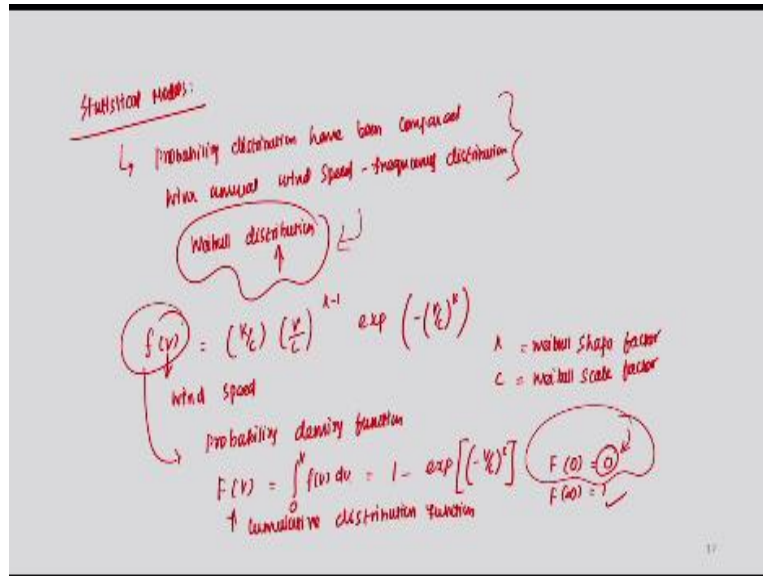 Statistical Models:
↳ Probability distribution have been compared
with annual wind speed - frequency distribution
Weibull distribution
f(v) = (k/c) (v/c)^{k-1} exp (-(v/c)^k)
k = weibull shape factor
c = weibull scale factor
wind speed
Probability density function
F(v) = ∫_0^v f(v) dv = 1 - exp[(-v/c)^k]
F(0) = 0
F(∞) = 1 ✓
↑ cumulative distribution function
17